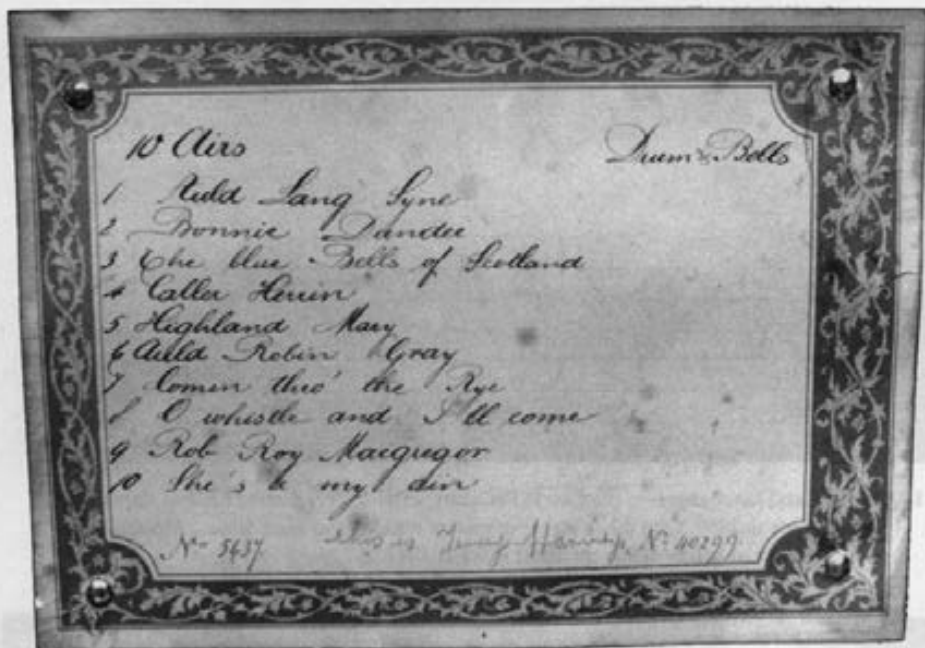 10 Airs Drum & Bells
1 Auld Lang Syne
2 Bonnie Dundee
3 The blue Bells of Scotland
4 Caller Herrin
5 Highland Mary
6 Auld Robin Gray
7 Comen thro' the Rye
8 O whistle and I'll come
9 Rob Roy Macgregor
10 She's a my ain
No 5437 this is Harvey No 40299